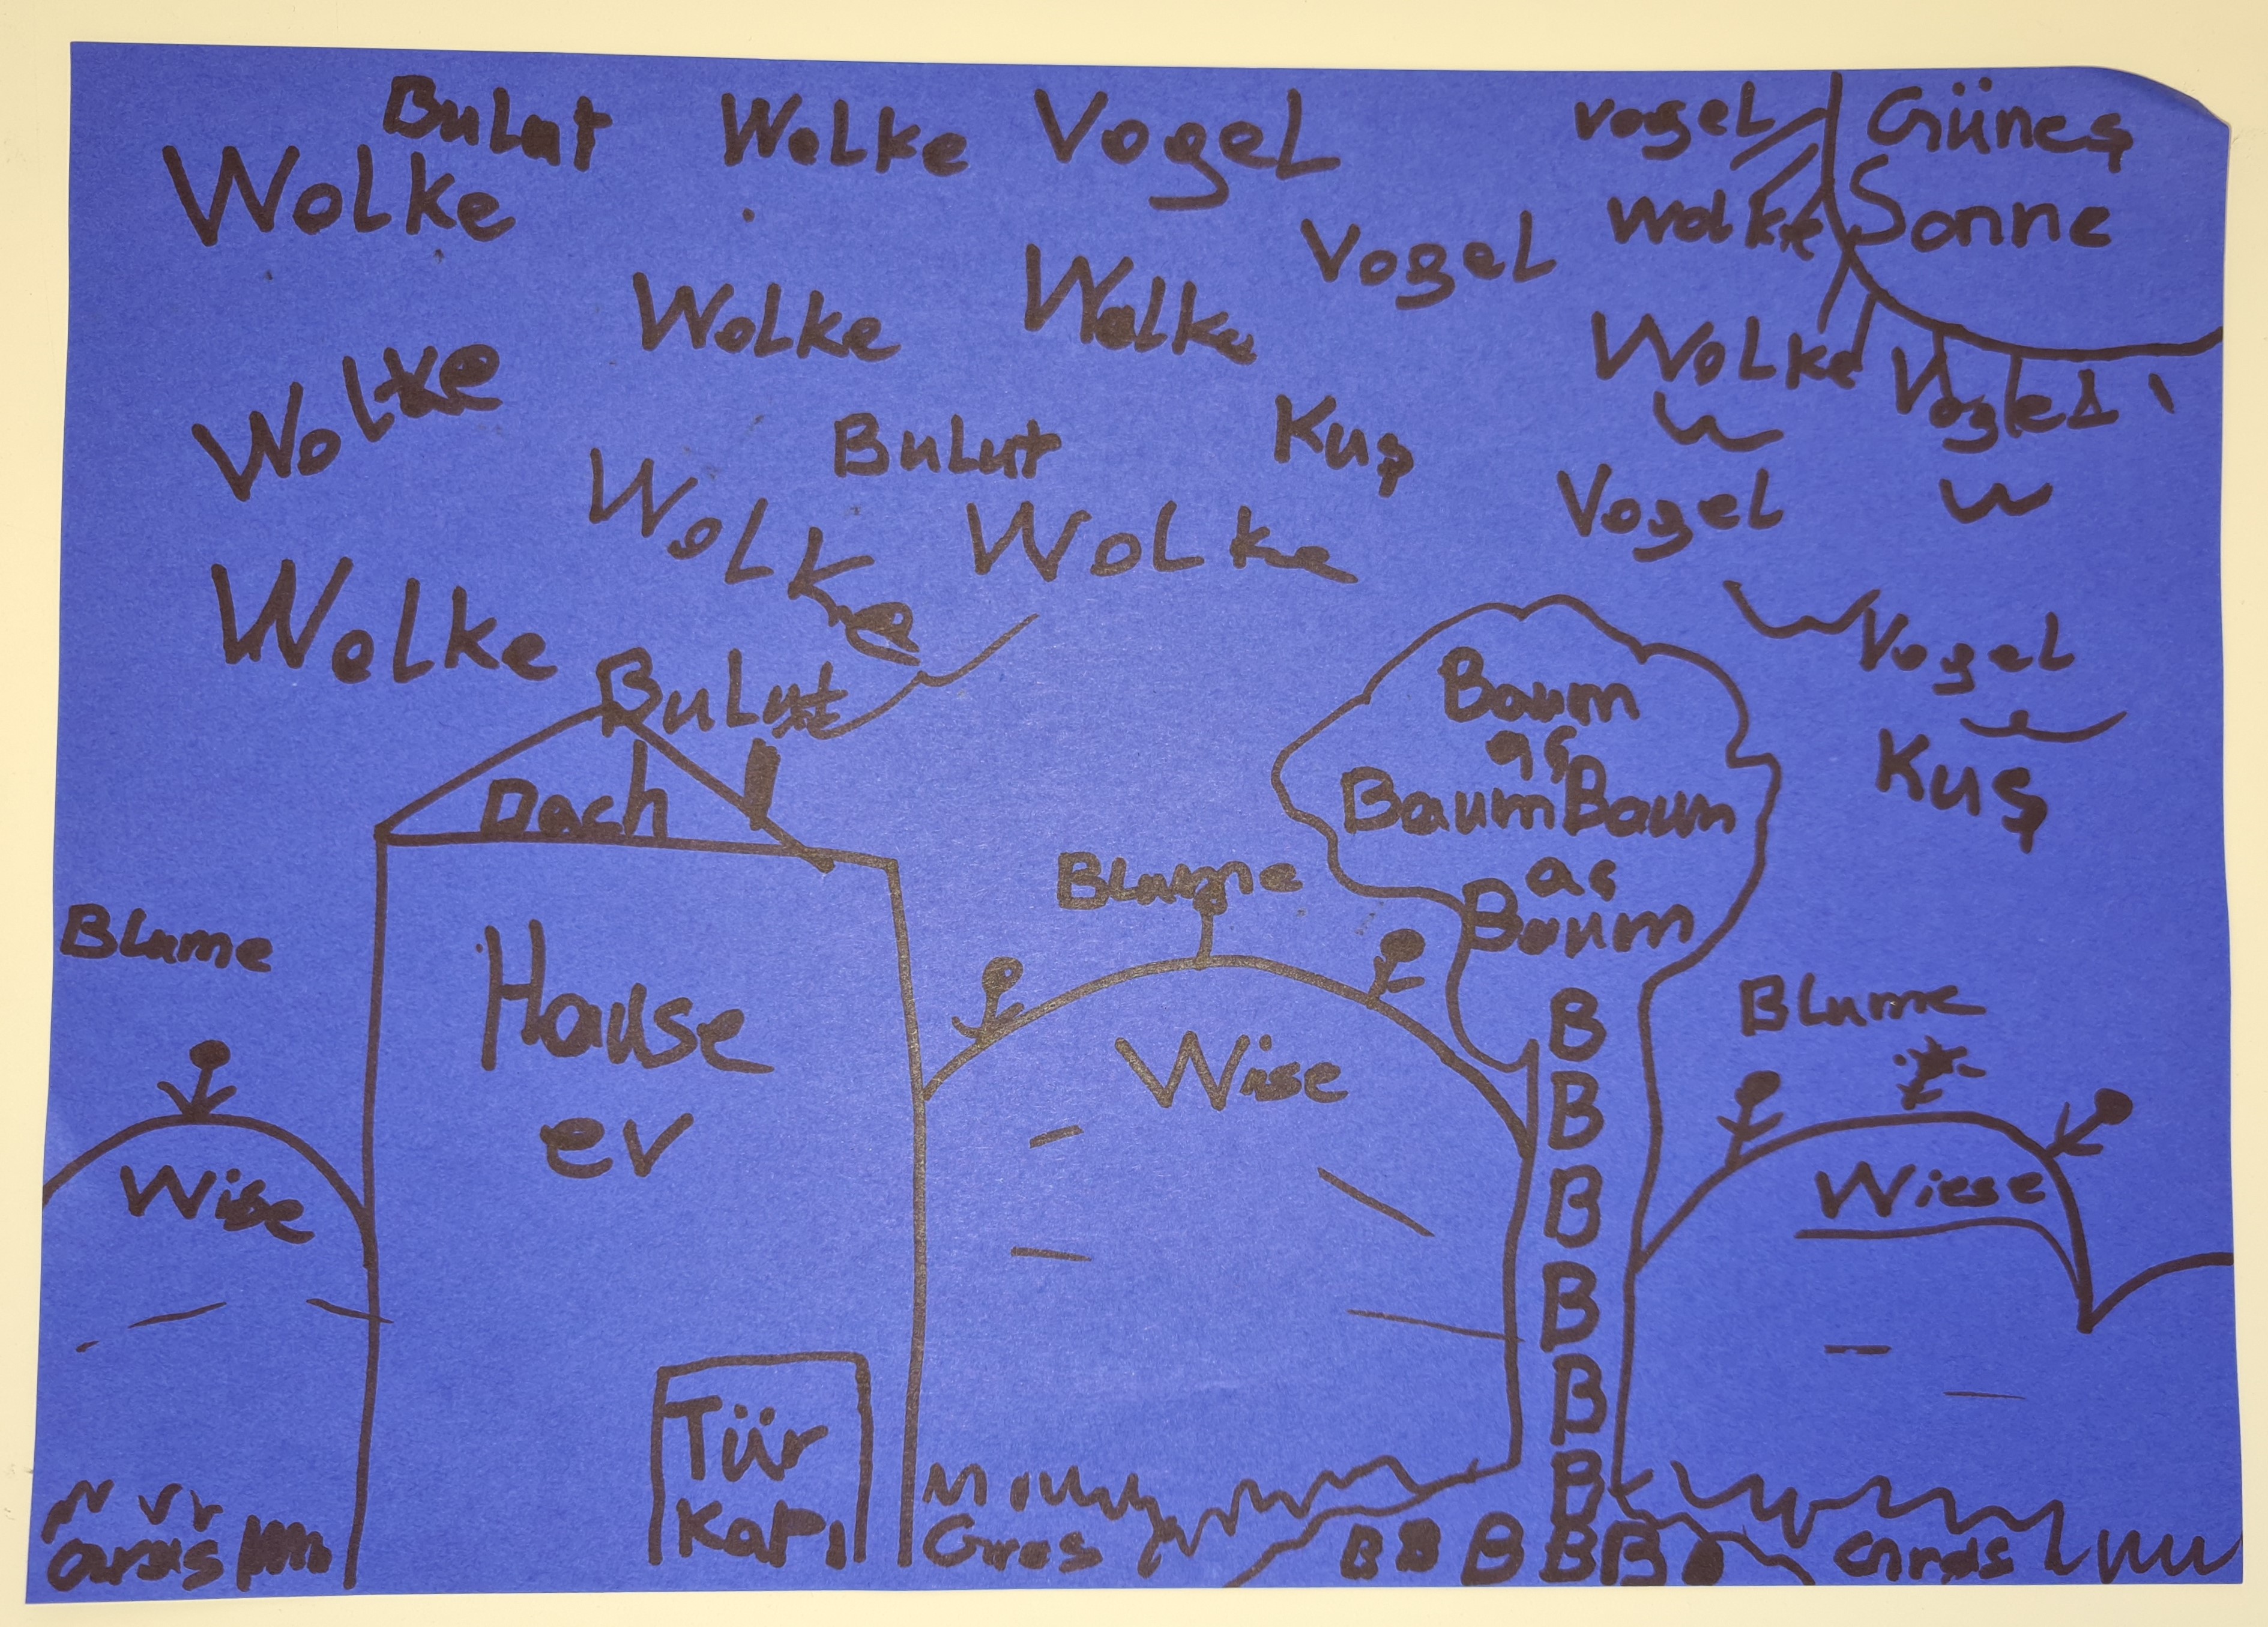 Bulut
Wolke
Wolke
Vogel
Vogel
Güneş
Wolke
Sonne
Vogel
Wolke
Wolke
Wolke
Wolke
Bulut
Kuş
Wolke
Wolke
Vogel
Wolke
Bulut
Vogel
Kuş
Dach
Baum
Baum Baum
Baum
Blume
Blume
Blume
Hause
ev
Wise
Wise
Wiese
B
B
B
B
B
B
Tür
Kapı
Gras
Gras
B B B B B
Gras